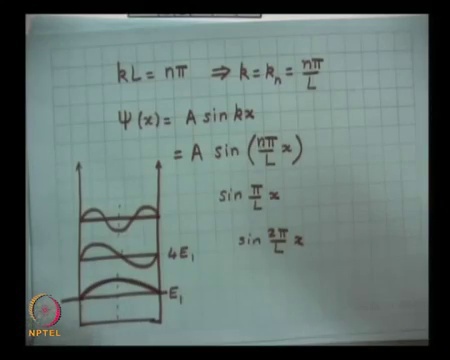 kL = nπ ⇒ k = kₙ = nπ/L
ψ(x) = A sin kx
= A sin (nπ/L x)
sin π/L x
sin 2π/L x
4E₁
E₁
NPTEL